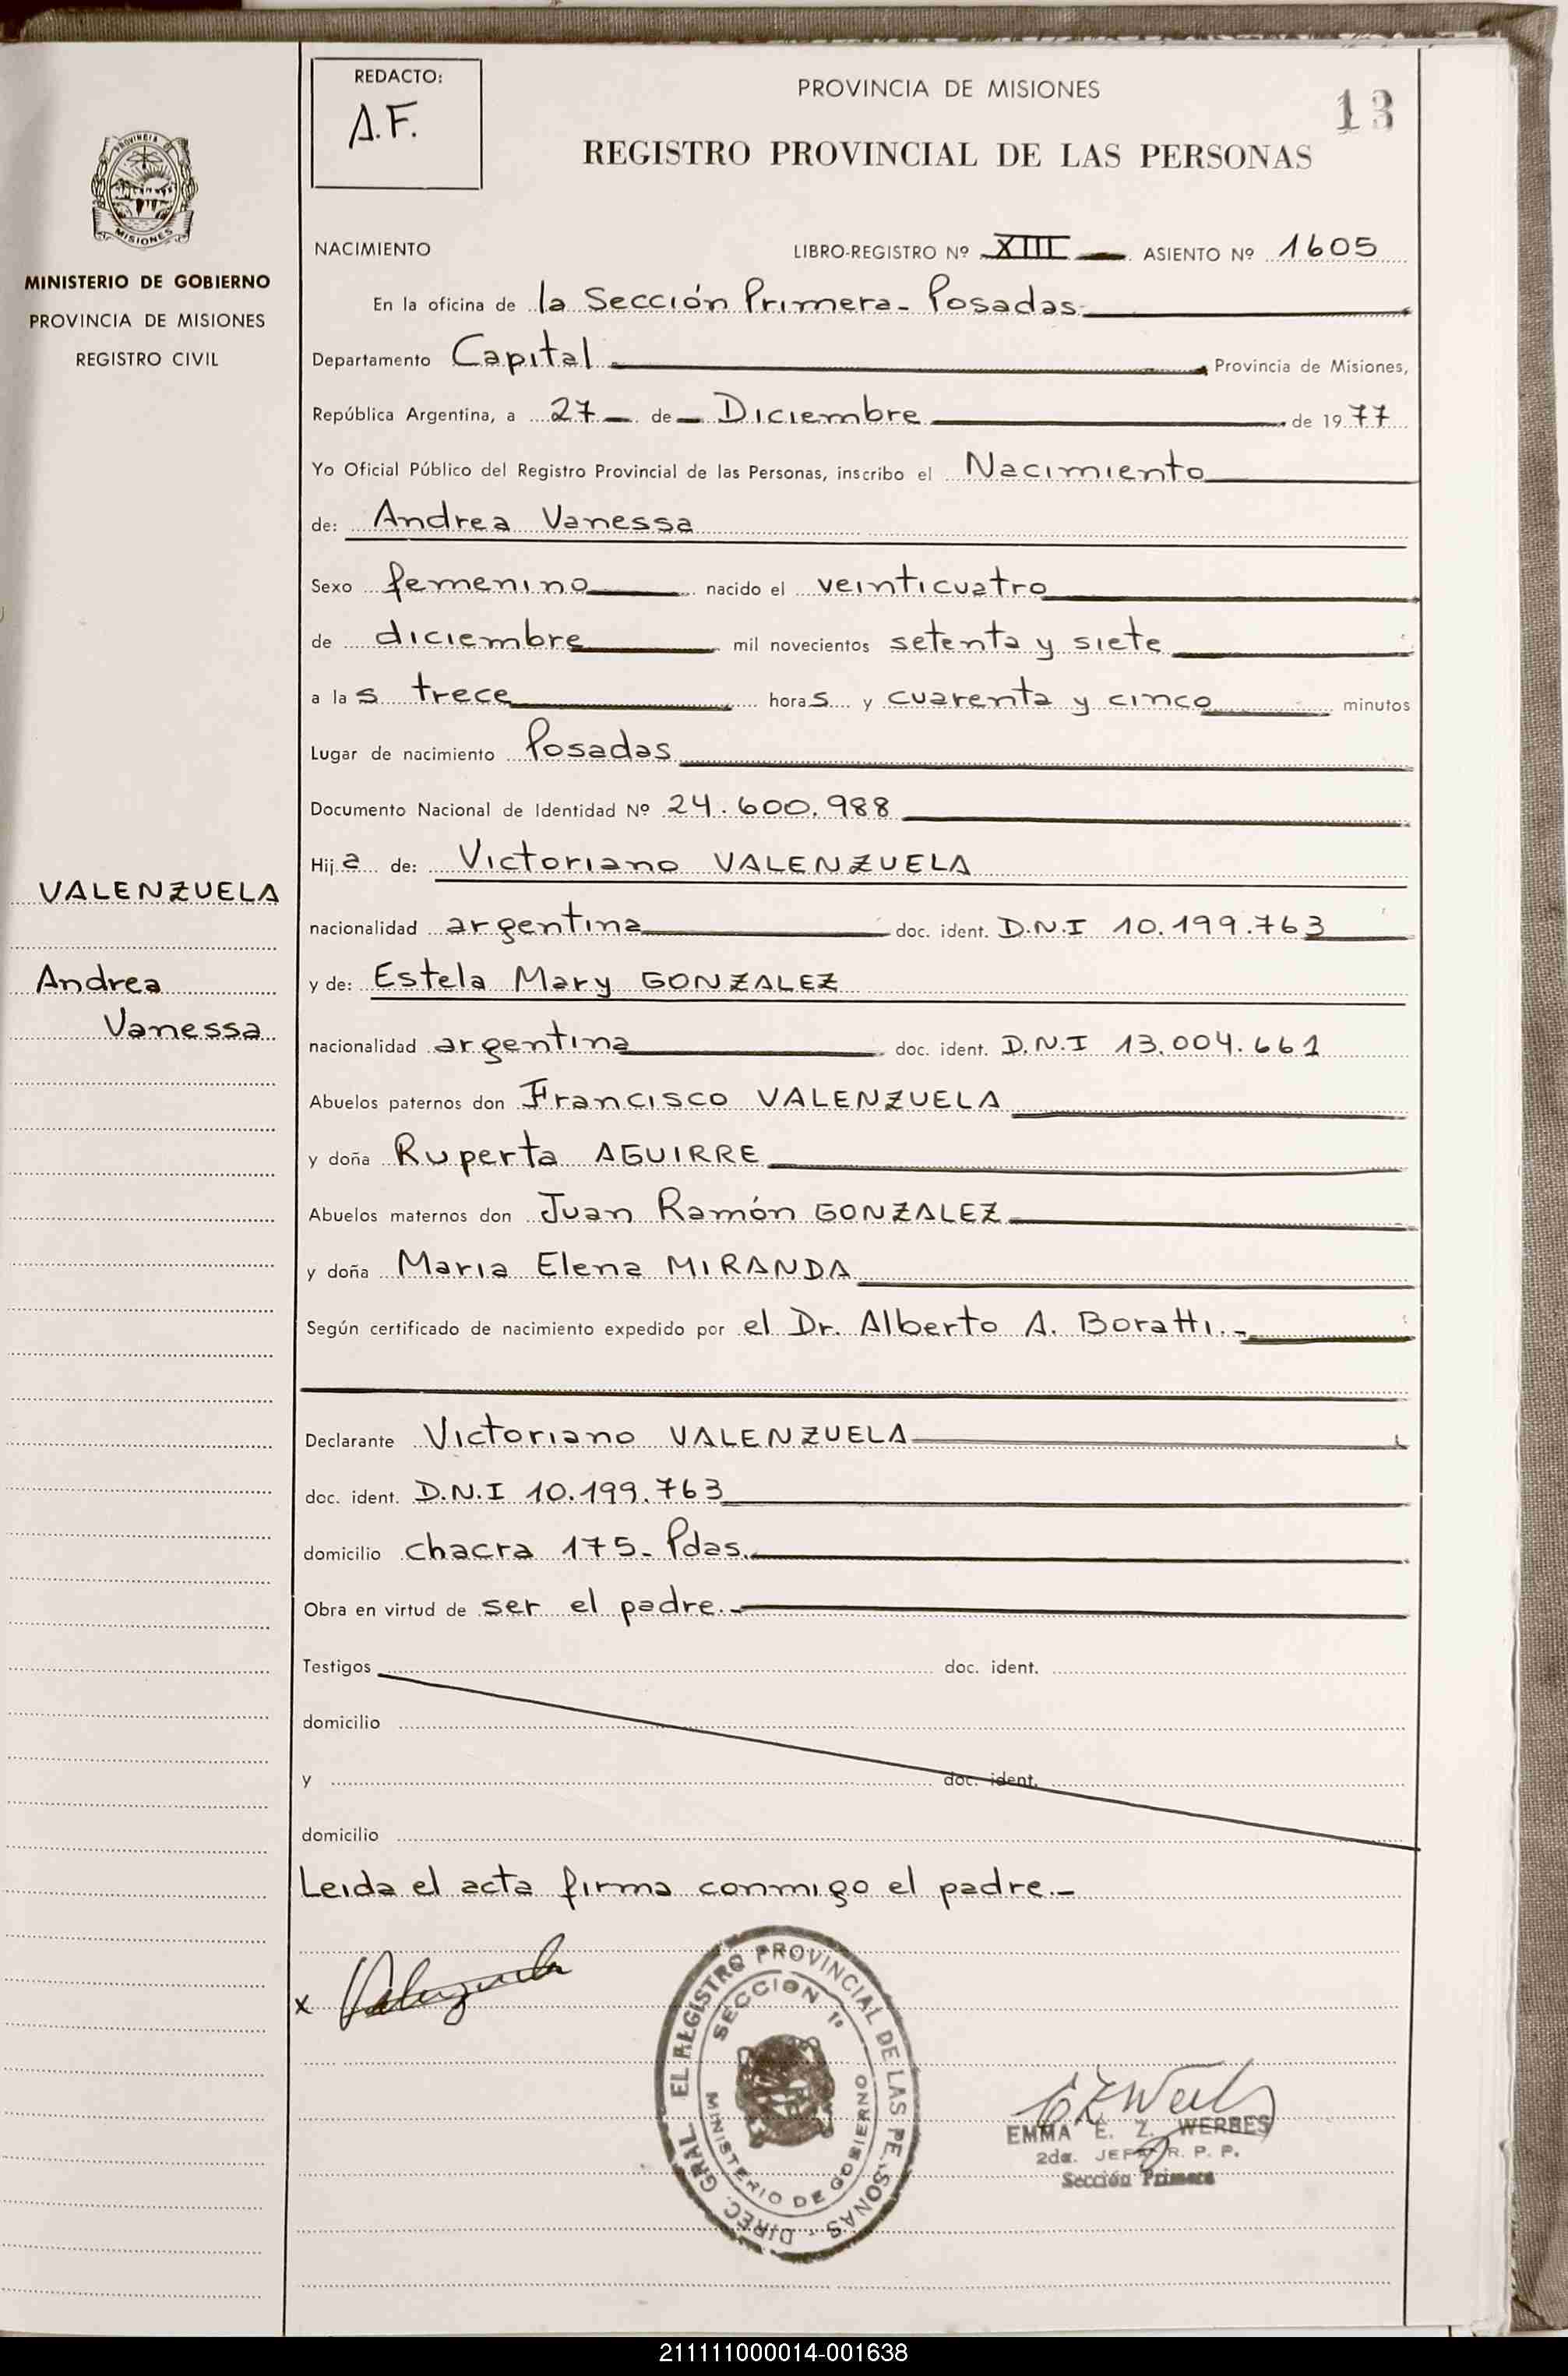 REDACTO:
A.F.
PROVINCIA DE MISIONES
13
REGISTRO PROVINCIAL DE LAS PERSONAS
PROVINCIA
MISIONES
MINISTERIO DE GOBIERNO
PROVINCIA DE MISIONES
REGISTRO CIVIL
NACIMIENTO LIBRO-REGISTRO Nº XIII ASIENTO Nº 1605
En la oficina de la Sección Primera - Posadas
Departamento Capital Provincia de Misiones,
República Argentina, a 27 de Diciembre de 1977
Yo Oficial Público del Registro Provincial de las Personas, inscribo el Nacimiento
de: Andrea Vanessa
Sexo femenino nacido el veinticuatro
de diciembre mil novecientos setenta y siete
a las trece horas y cuarenta y cinco minutos
Lugar de nacimiento Posadas
Documento Nacional de Identidad Nº 24.600.988
Hija de: Victoriano VALENZUELA
nacionalidad argentina doc. ident. D.N.I 10.199.763
y de: Estela Mary GONZALEZ
nacionalidad argentina doc. ident. D.N.I 13.004.661
Abuelos paternos don Francisco VALENZUELA
y doña Ruperta AGUIRRE
Abuelos maternos don Juan Ramón GONZALEZ
y doña Maria Elena MIRANDA
Según certificado de nacimiento expedido por el Dr. Alberto A. Boratti.-
Declarante Victoriano VALENZUELA
doc. ident. D.N.I 10.199.763
domicilio chacra 175 - Pdas.
Obra en virtud de ser el padre.-
Testigos doc. ident.
domicilio
y doc. ident.
domicilio
Leida el acta firma conmigo el padre.-
VALENZUELA
Andrea
Vanessa
x Valenzuela
DIREC. GRAL. EL REGISTRO PROVINCIAL DE LAS PERSONAS -
SECCION 1º
MINISTERIO DE GOBIERNO
EMMA E. Z. WERBES
2da. JEFA R. P. P.
Sección Primera
211111000014-001638